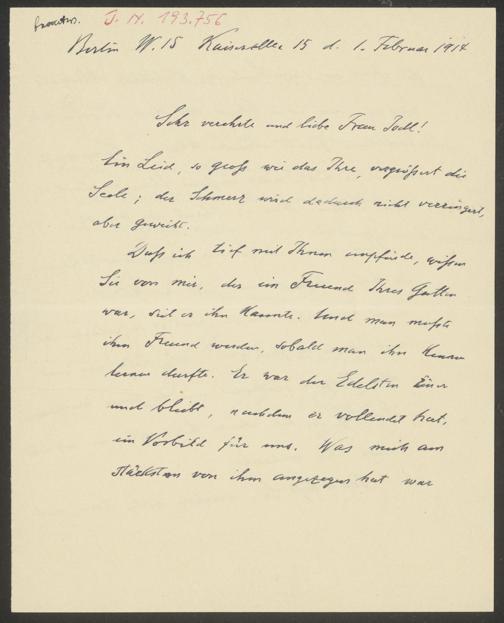 J. N. 193.756
Berlin W. 15 Kaiserallee 15 d. 1. Februar 1914
Sehr verehrte und liebe Frau Jodl!
Ein Leid, so groß wie das Ihre, vergrößert die
Seele; der Schmerz wird dadurch nicht verringert,
aber geweiht.
Daß ich tief mit Ihnen empfinde, wissen
Sie von mir, der ein Freund Ihres Gatten
war, seit er ihn kannte. Und man mußte
ihm Freund werden, sobald man ihn kennen
lernen durfte. Er war der Edelsten Einer
und bleibt, nachdem er vollendet hat,
ein Vorbild für uns. Was mich am
stärksten von ihm angezogen hat war